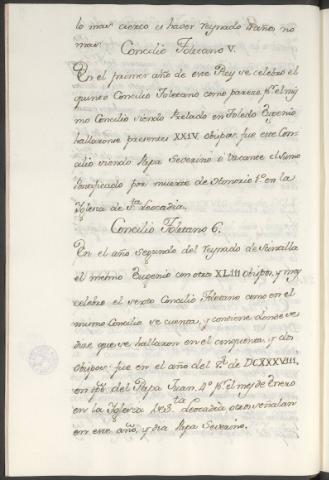 lo mas cierto es haver Reynado 4 años no
mas.
Concilio Toletano V.
En el primer año de este Rey se celebro el
quinto Concilio Toletano como parece pr. el mis
mo Concilio siendo Prelado en Toledo Eugenio
hallaronse presentes XXIV. obispos, fue este Con
cilio siendo Papa Severino o Vacante el Sumo
Pontificado por muerte de Honorio 1º en la
Yglesia de Sta. Leocadia.
Concilio Toletano 6.
En el año segundo del Reynado de Suintilla
el mismo Eugenio con otros XLIII obispos, y mas
celebro el sexto Concilio Toletano como en el
mismo Concilio se cuenta, y contiene donde se
dice que se hallaron en el cinquenta, y dos
Obispos fue en el año del Sr. de DCXXXVIII,
en del Papa Juan 4º pr. el mes de Enero
en la Yglesia de Sta. Leocadia otros señalan
en este año, y dia Papa Severino.